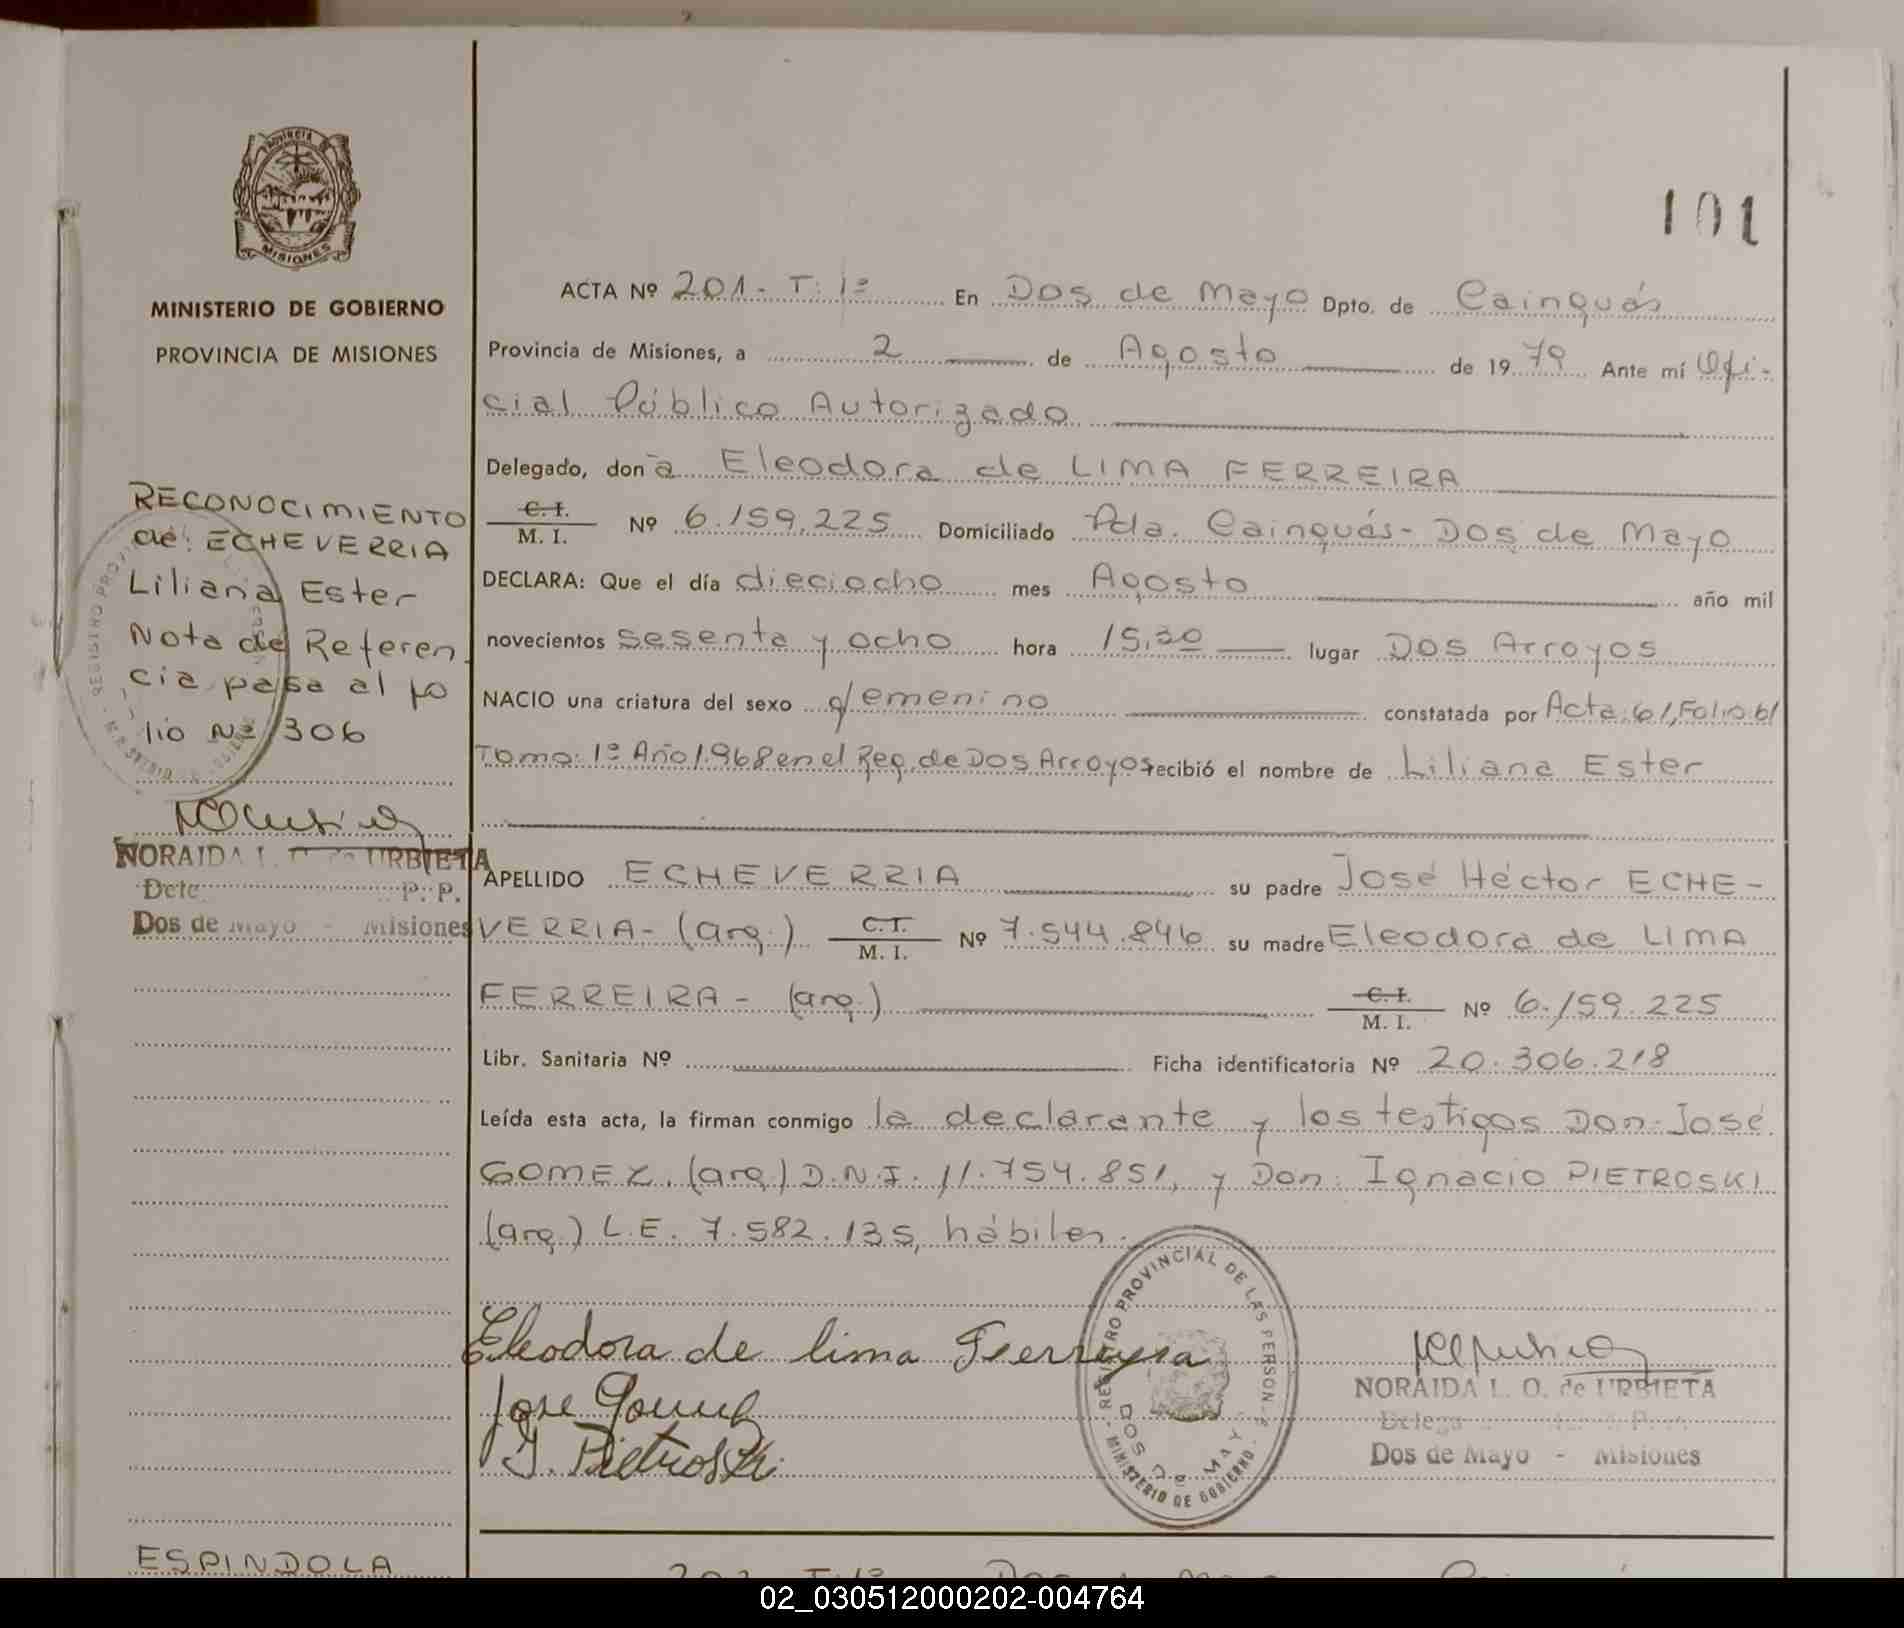 101
PROVINCIA
MISIONES
MINISTERIO DE GOBIERNO
PROVINCIA DE MISIONES
RECONOCIMIENTO
de: ECHEVERRIA
Liliana Ester
Nota de Referen
cia pasa al fo
lio Nº 306
NORAIDA L. O. de URBIETA
P. P.
Dos de Mayo - Misiones
ESPINDOLA
ACTA Nº 201- T: 1º En Dos de Mayo Dpto. de Cainguás
Provincia de Misiones, a 2 de Agosto de 1979 Ante mí Ofi-
cial Público Autorizado
Delegado, don a Eleodora de LIMA FERREIRA
C. I. / M. I. Nº 6.159.225 Domiciliado Pda. Cainguás- Dos de Mayo
DECLARA: Que el día dieciocho mes Agosto año mil
novecientos sesenta y ocho hora 15,30 lugar Dos Arroyos
NACIO una criatura del sexo femenino constatada por Acta: 61, Folio 61
Tomo: 1º Año 1.968 en el Reg. de Dos Arroyos recibió el nombre de Liliana Ester
APELLIDO ECHEVERRIA su padre José Héctor ECHE-
VERRIA- (arg.) C.I. / M. I. Nº 7.544.846 su madre Eleodora de LIMA
FERREIRA- (arg.) C.I. / M. I. Nº 6.159.225
Libr. Sanitaria Nº Ficha identificatoria Nº 20.306.218
Leída esta acta, la firman conmigo la declarante y los testigos Don: José
GOMEZ, (arg.) D.N.I. 11.754.851, y Don: Ignacio PIETROSKI
(arg.) L.E. 7.582.135, hábiles.
Eleodora de lima Ferreyra
Jose Gomez
I. Pietroski
REGISTRO PROVINCIAL DE LAS PERSON
DOS DE MAYO
MINISTERIO DE GOBIERNO
NORAIDA L. O. de URBIETA
Dos de Mayo - Misiones
02_030512000202-004764